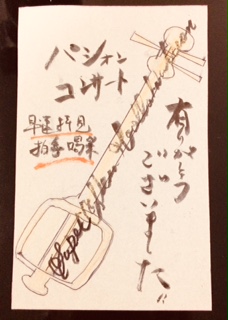 パシォン
コンサート
早速拝見
拍手喝采
有りがとう
ございました